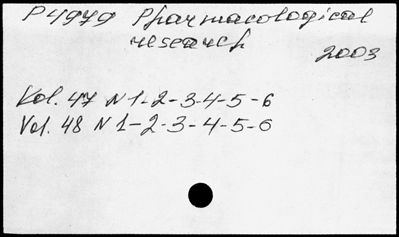 P4979 Pharmacological
research
2003
Vol. 47 N 1-2-3-4-5-6
Vol. 48 N 1-2-3-4-5-6